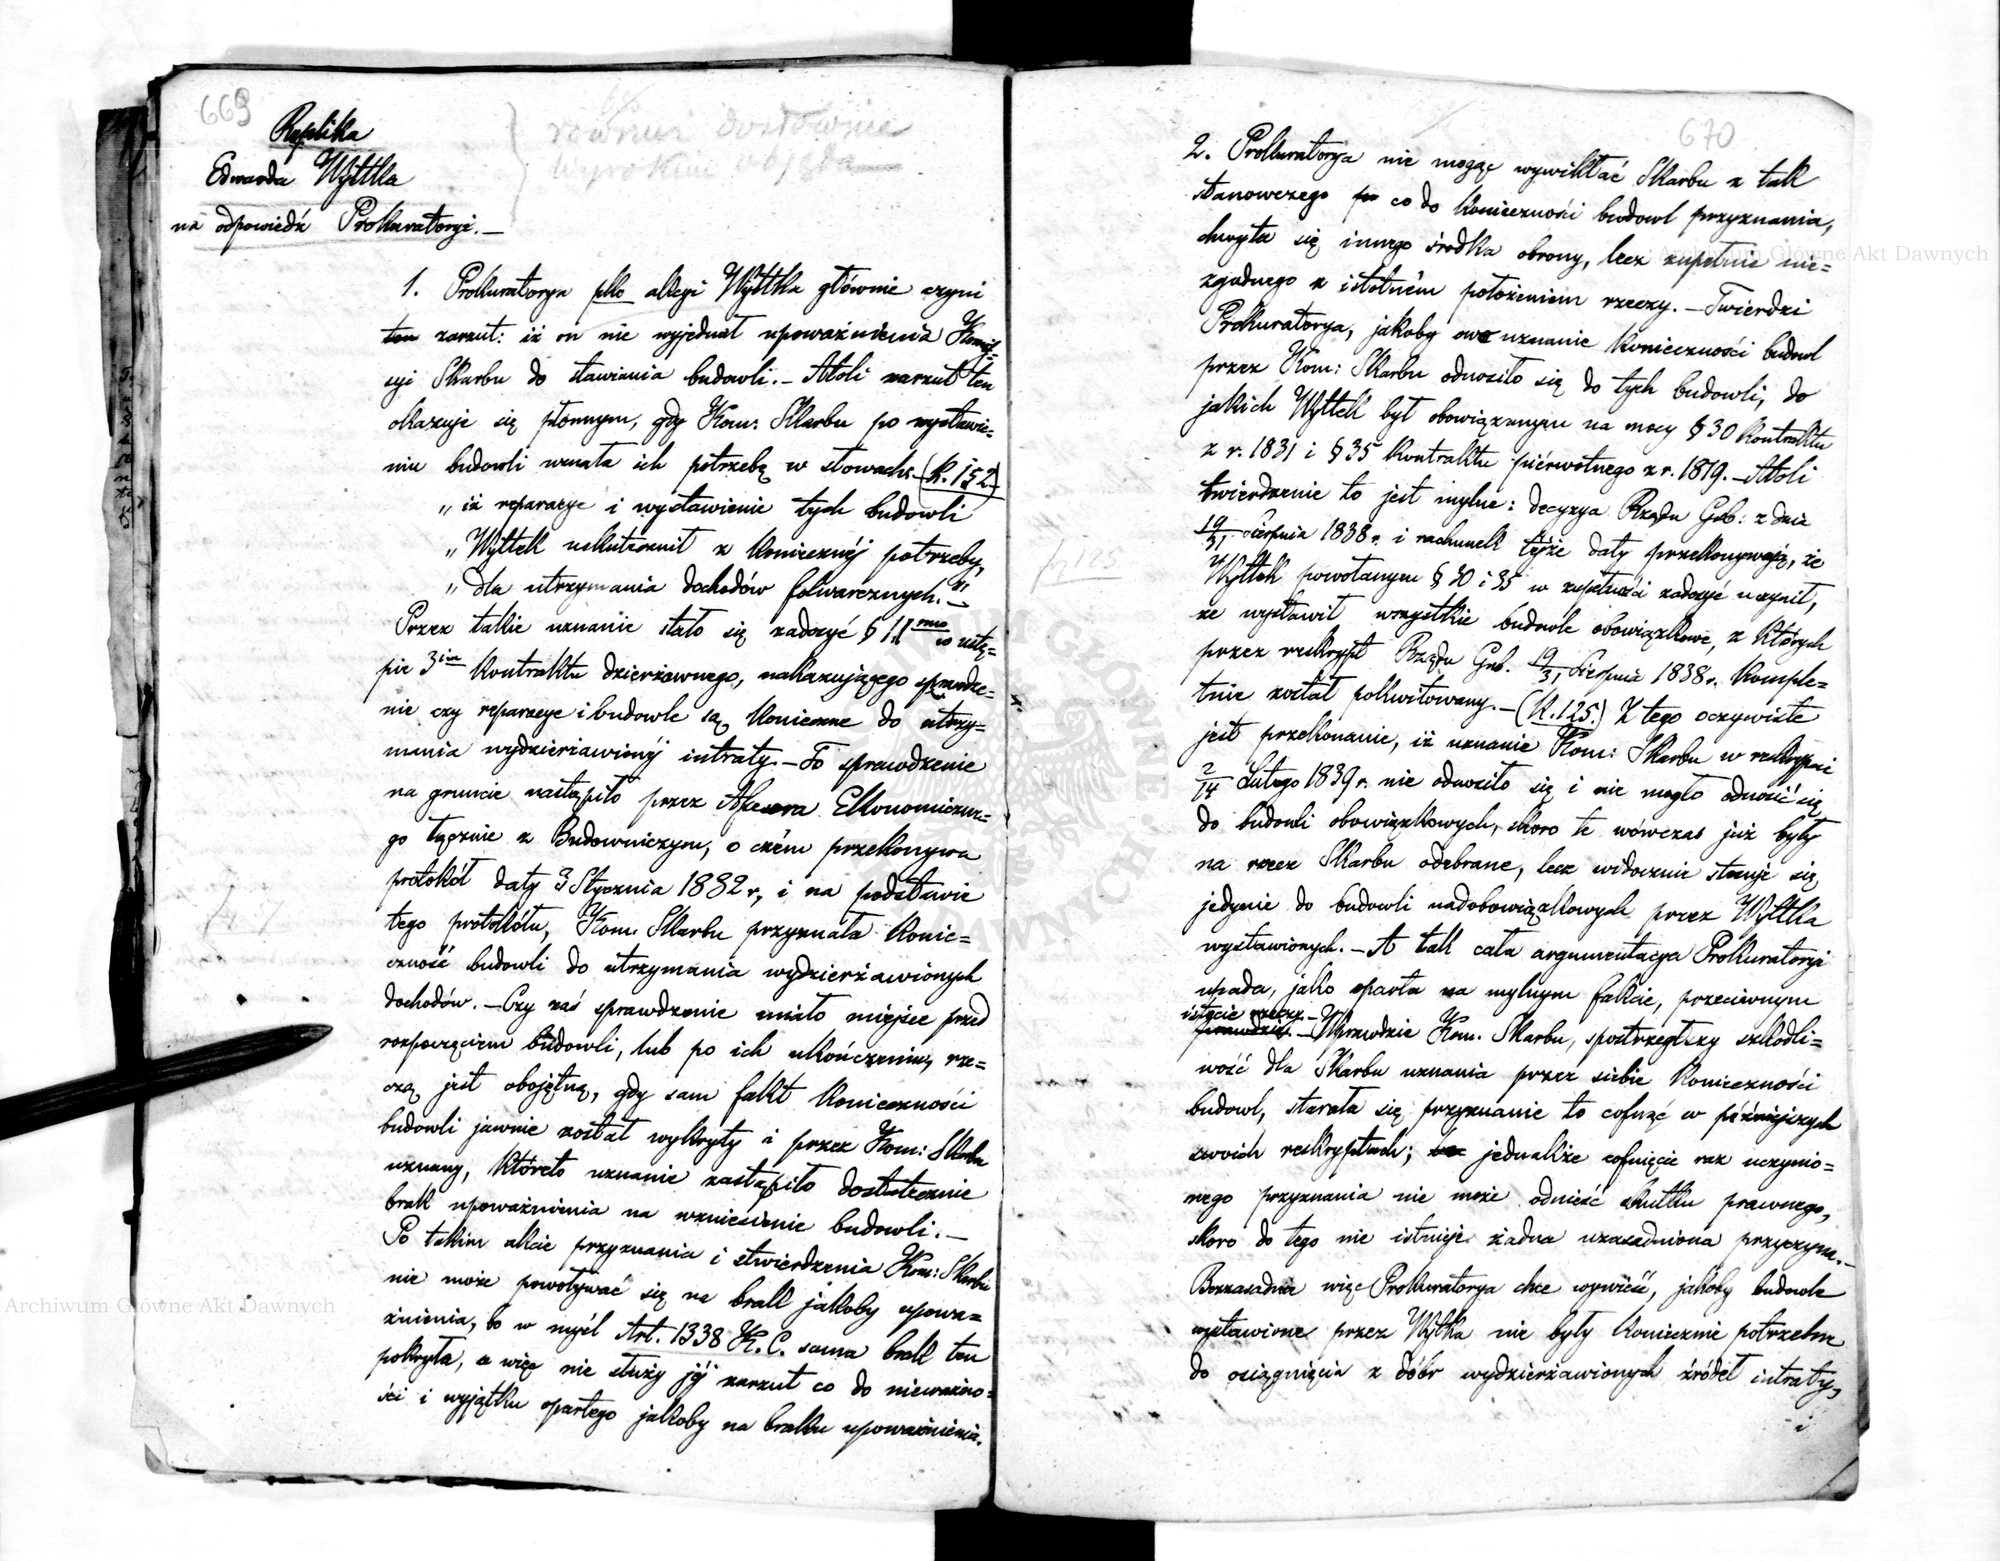 669
Replika
Edwarda Wyttka
na odpowiedź Prokuratoryi. —
1. Prokuratorya pko akcyi Wyttka głównie czyni
ten zarzut: iż on nie wyjednał upoważnienia Komis-
syi Skarbu do stawiania budowli. — Atoli zarzut ten
okazuje się płonnym, gdy Kom: Skarbu po wystawie=
niu budowli uznała ich potrzebę w słowach: (K. 152)
„ iż reparacye i wystawienie tych budowli
„ Wyttek uskutecznił z koniecznéj potrzeby,
„ dla utrzymania dochodów folwarcznych. "—
Przez takie uznanie stało się zadosyć § 11 w ustę=
pie 3im kontraktu dzierżawnego, nakazującego sprawdze=
nie czy reparacye i budowle są konieczne do utrzy=
mania wydzierżawionéj intraty. — To sprawdzenie
na gruncie nastąpiło przez Assesora Ekonomiczne=
go łącznie z Budowniczym, o czém przekonywa
protokół daty 3 Stycznia 1832 r, i na podstawie
tego protokółu, Kom. Skarbu przyznała konie=
czność budowli do utrzymania wydzierżawionych
dochodów. — Czy zaś sprawdzenie miało miejsce przed
rozpoczęciem budowli, lub po ich ukończeniu, rze=
czą jest obojętną, gdy sam fakt konieczności
budowli jawnie został wykryty i przez Kom: Skarbu
uznany, któreto uznanie zastąpiło dostatecznie
brak upoważnienia na wzniesienie budowli. —
Po takim akcie przyznania i stwierdzenia Kom: Skarbu
nie może powoływać się na brak jakoby upowa=
żnienia, bo w myśl Art. 1338 K. C. sama brak ten
pokryła, a więc nie służy jéj zarzut co do nieważno=
ści i wyjątku opartego jakoby na braku upoważnienia.
670
2. Prokuratorya nie mogąc wywikłać Skarbu z tak
stanowczego co do konieczności budowl przyznania,
chwyta się innego środka obrony, lecz zupełnie nie=
zgodnego z istotném położeniem rzeczy. — Twierdzi
Prokuratorya, jakoby owe uznanie konieczności budowl
przez Kom: Skarbu odnosiło się do tych budowli, do
jakich Wyttek był obowiązanym na mocy § 30 kontraktu
z r. 1831 i § 35 kontraktu pierwotnego z r. 1819. — Atoli
twierdzenie to jest mylne: decyzya Rządu Gub: z dnia
19/31 Sierpnia 1838 r. i rachunek téjże daty przekonywają, że
Wyttek powołanym § 30 i 35 w zupełności zadosyć uczynił,
że wystawił wszystkie budowle obowiązkowe, z których
przez reskrypt Rządu Gub. 19/31 Sierpnia 1838 r. komple=
tnie został pokwitowany. — (K. 125.) Z tego oczywiste
jest przekonanie, iż uznanie Kom: Skarbu w reskrypcie
2/14 Lutego 1839 r. nie odnosiło się i nie mogło odnosić się
do budowli obowiązkowych, skoro te wówczas już były
na rzecz Skarbu odebrane, lecz widocznie stosuje się
jedynie do budowli nadobowiązkowych przez Wyttka
wystawionych. — A tak cała argumentacya Prokuratoryi
upada, jako oparta na mylnym fakcie, przeciwnym
istocie rzeczy. —
prawdzie. — Wprawdzie Kom. Skarbu, spostrzegłszy szkodli=
wość dla Skarbu uznania przez siebie konieczności
budowl, starała się przyznanie to cofnąć w późniejszych
swoich reskryptach; jednakże cofnięcie raz uczynio=
nego przyznania nie może odnieść skutku prawnego,
skoro do tego nie istnieje żadna uzasadniona przyczyna. —
Bezzasadnie więc Prokuratorya chce wywieść, jakoby budowle
wystawione przez Wyttka nie były koniecznie potrzebne
do osiągnięcia z dóbr wydzierżawionych źródeł intraty,
i